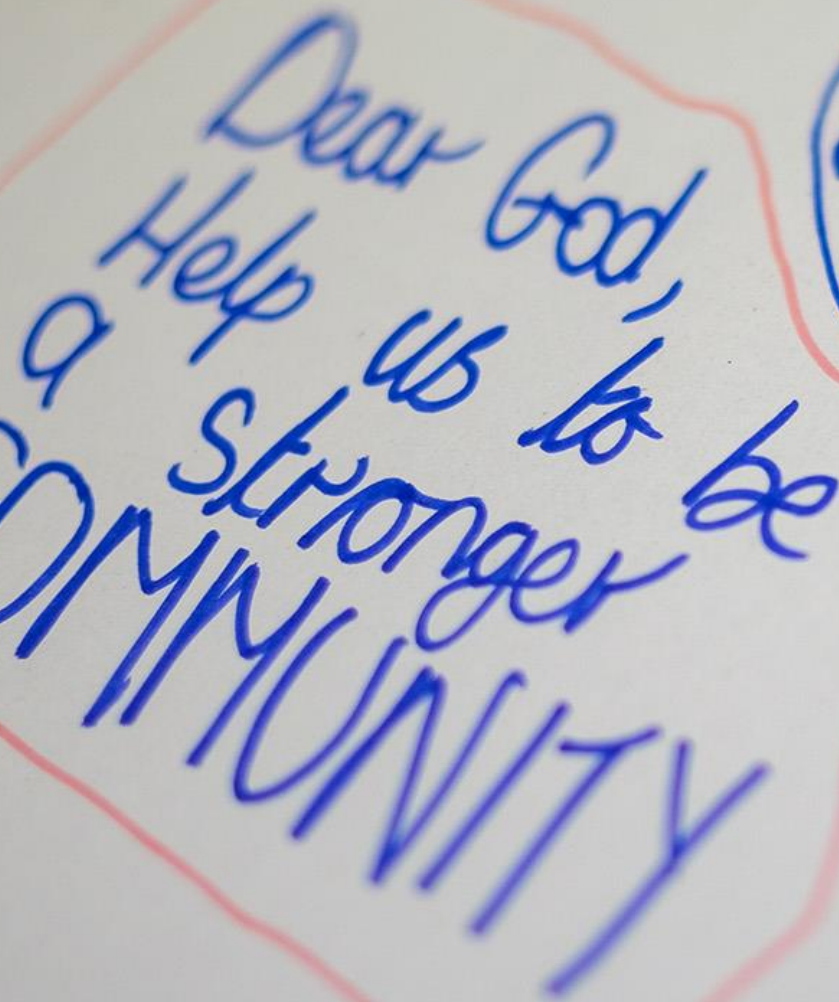 Dear God,
Help us to be
a stronger
COMMUNITY